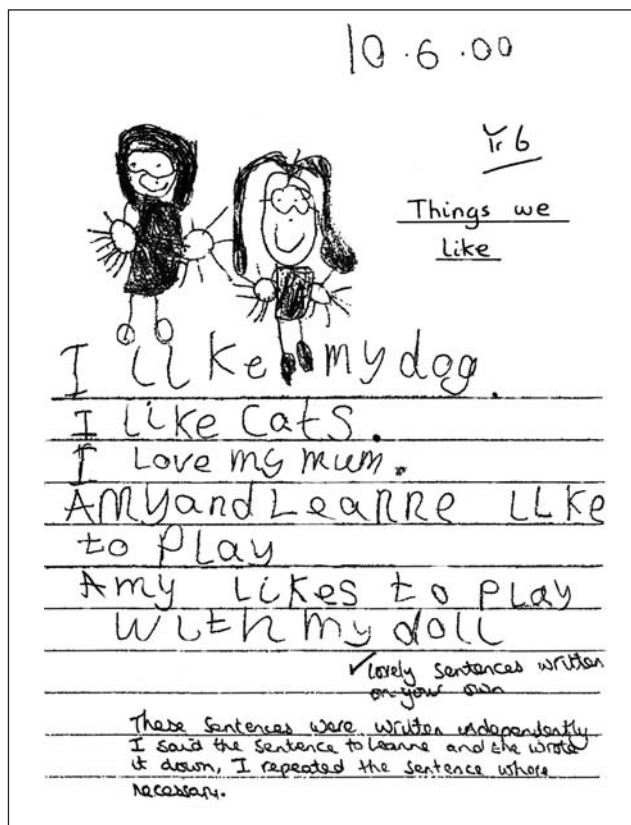 10.6.00
Yr 6
Things we
like
I like my dog.
I like cats.
I love my mum.
Amy and Leanne like
to play
Amy likes to play
with my doll
✓ lovely sentences written
on your own
These sentences were written independently
I said the sentence to Leanne and she wrote
it down, I repeated the sentence where
necessary.